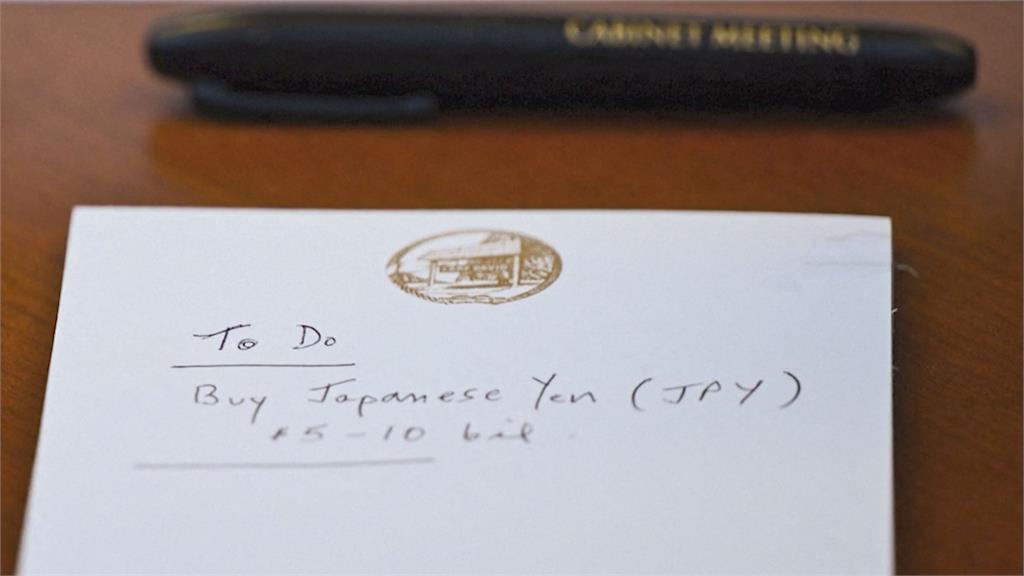 CABINET MEETING
To Do
Buy Japanese Yen (JPY)
$5-10 bil